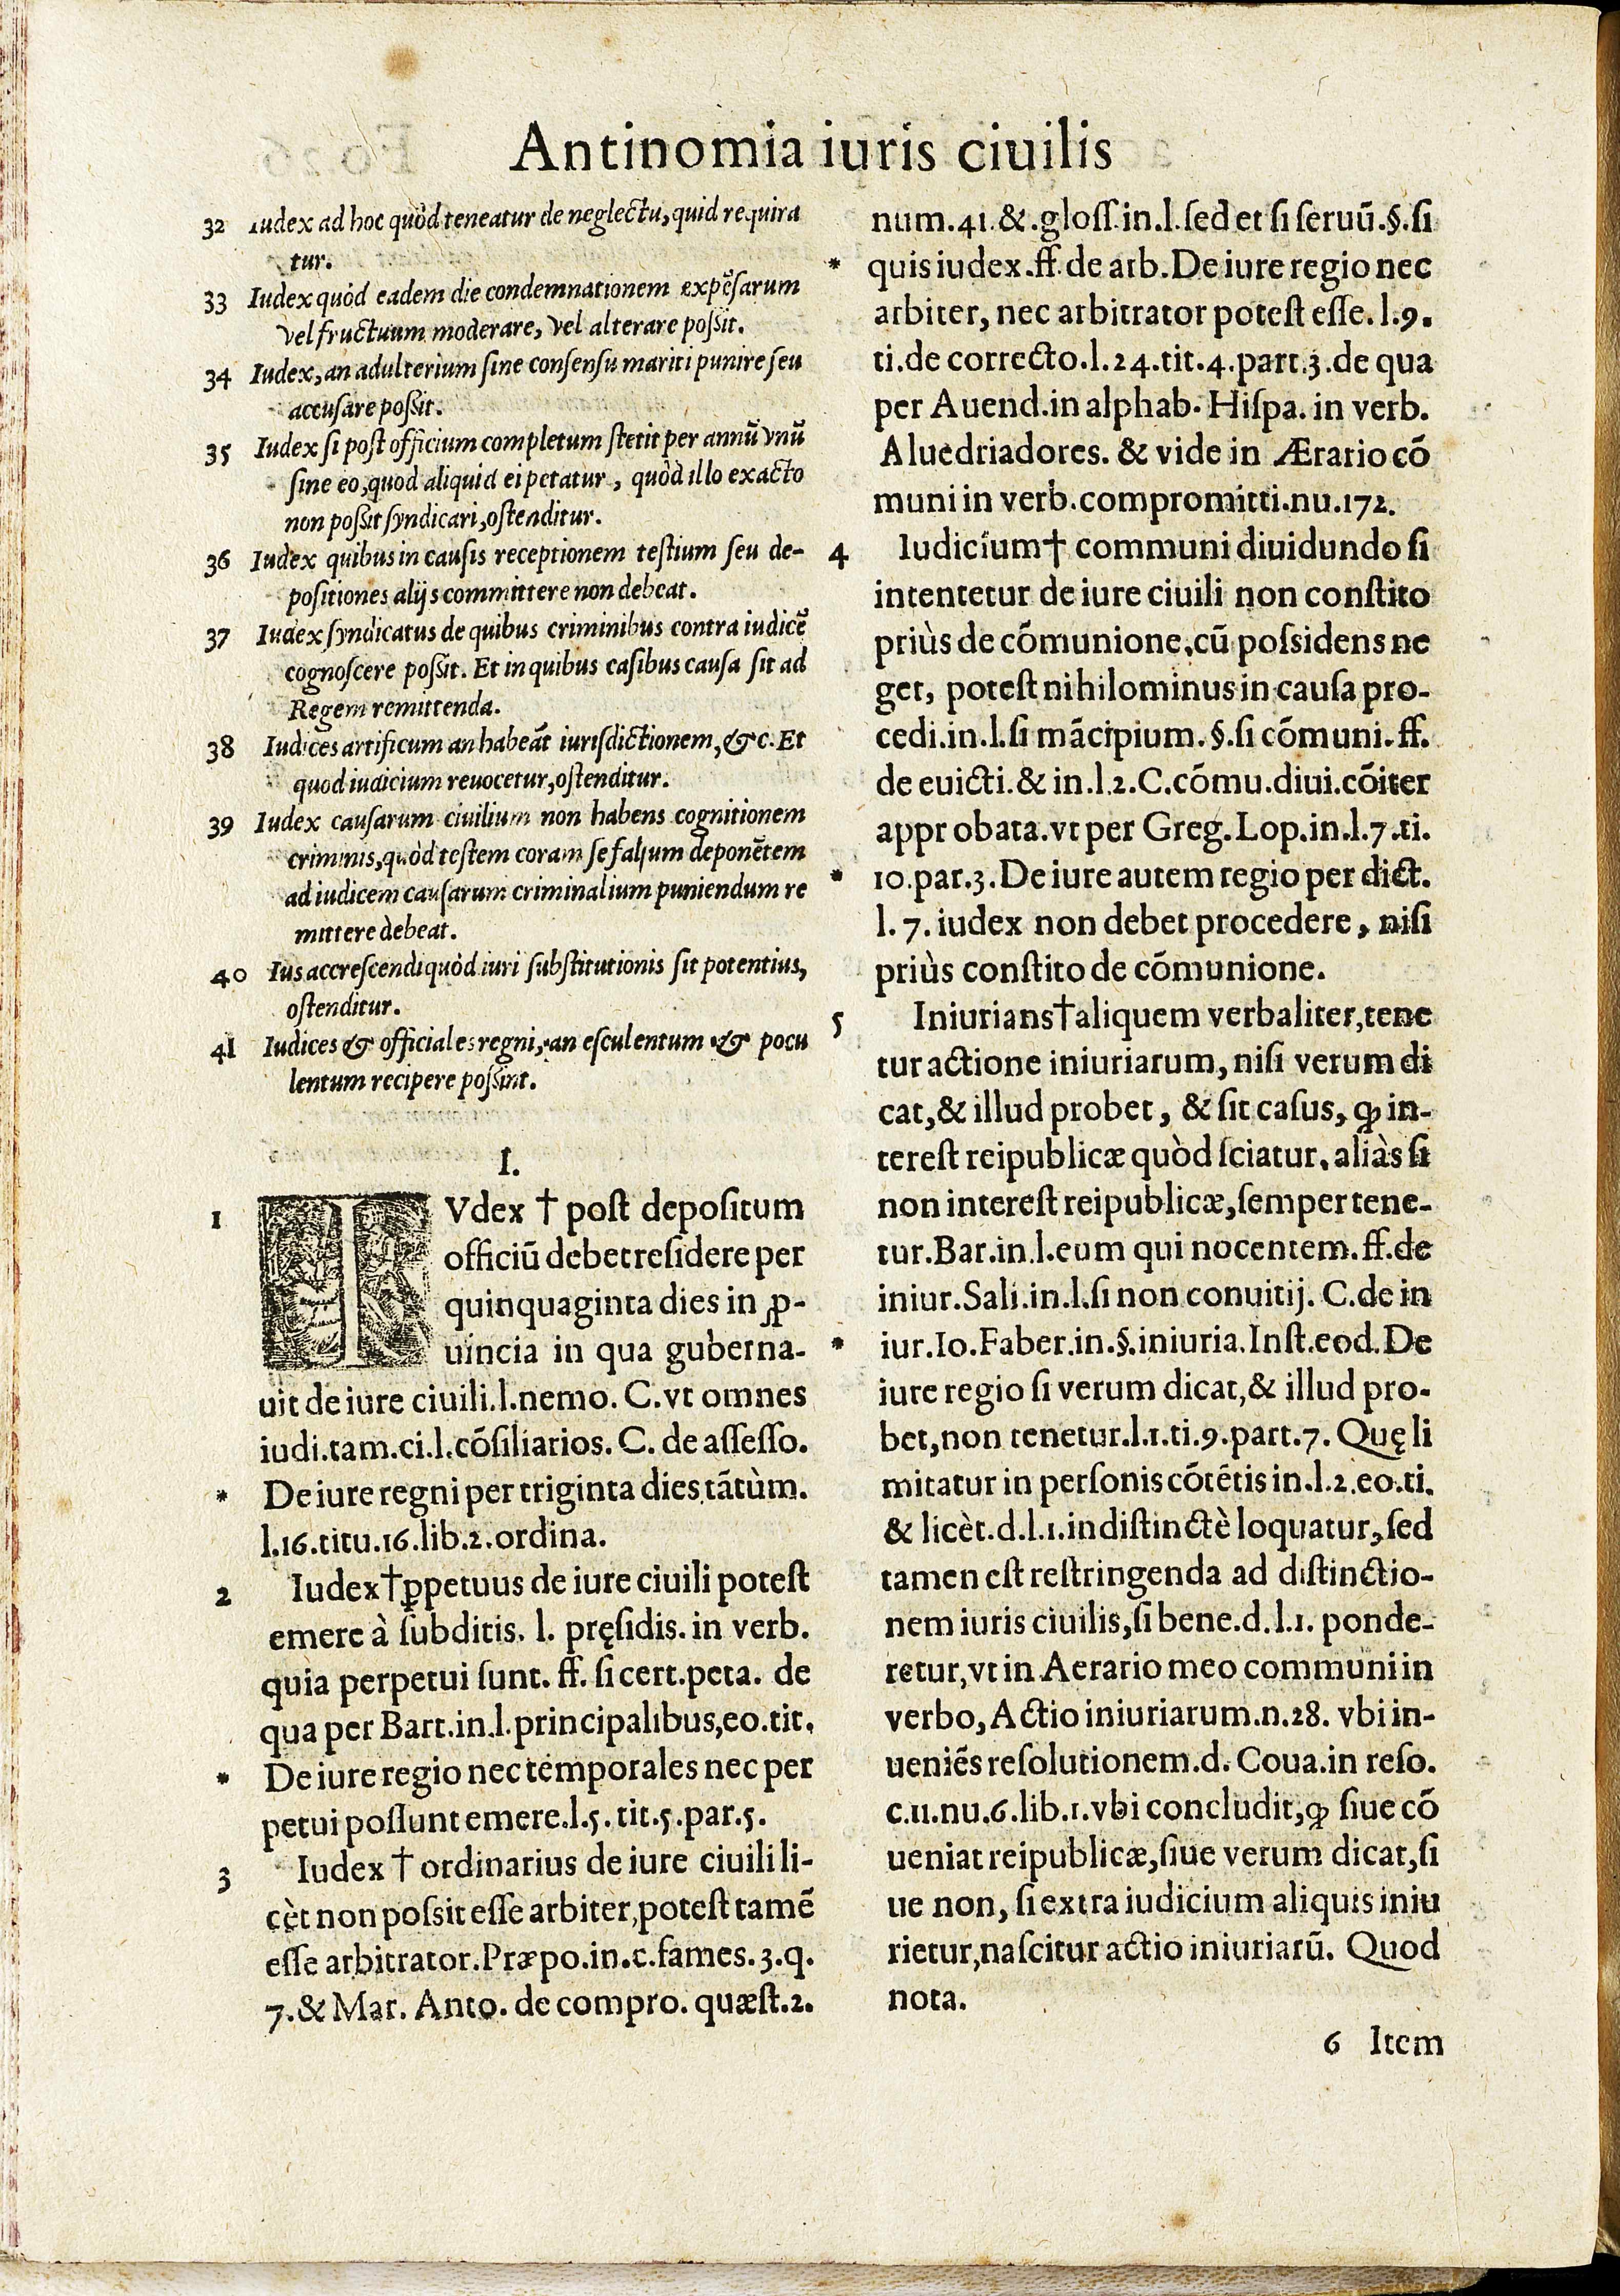 Antinomia iuris ciuilis
32 Iudex ad hoc quòd teneatur de neglectu, quid requira
tur.
33 Iudex quòd eadem die condemnationem expẽsarum
vel fructuum moderare, vel alterare poſsit.
34 Iudex, an adulterium ſine conſenſu mariti punire ſeu
accuſare poſsit.
35 Iudex ſi poſt officium completum ſtetit per annũ vnũ
ſine eo, quod aliquid ei petatur, quòd illo exacto
non poſsit ſyndicari, oſtenditur.
36 Iudex quibus in cauſis receptionem teſtium ſeu de-
poſitiones alijs committere non debeat.
37 Iudex ſyndicatus de quibus criminibus contra iudicẽ
cognoſcere poſsit. Et in quibus caſibus cauſa ſit ad
Regem remittenda.
38 Iudices artificum an habeãt iuriſdictionem, &c. Et
quod iudicium reuocetur, oſtenditur.
39 Iudex cauſarum ciuilium non habens cognitionem
criminis, quòd teſtem coram ſe falſum deponẽtem
ad iudicem cauſarum criminalium puniendum re
mittere debeat.
40 Ius accreſcendi quòd iuri ſubſtitutionis ſit potentius,
oſtenditur.
41 Iudices & officiales regni, an eſculentum & pocu
lentum recipere poſsint.
I.
1 IVdex † poſt depoſitum
officiũ debet reſidere per
quinquaginta dies in ꝓ-
uincia in qua guberna-
uit de iure ciuili. l. nemo. C. vt omnes
iudi. tam. ci. l. cõſiliarios. C. de aſſeſſo.
* De iure regni per triginta dies tãtùm.
l. 16. titu. 16. lib. 2. ordina.
2 Iudex † ꝑpetuus de iure ciuili poteſt
emere à ſubditis. l. pręſidis. in verb.
quia perpetui ſunt. ff. ſi cert. peta. de
qua per Bart. in. l. principalibus, eo. tit.
* De iure regio nec temporales nec per
petui poſſunt emere. l. 5. tit. 5. par. 5.
3 Iudex † ordinarius de iure ciuili li-
cèt non poſsit eſſe arbiter, poteſt tamẽ
eſſe arbitrator. Præpo. in. c. fames. 3. q.
7. & Mar. Anto. de compro. quæſt. 2.
num. 41. &. gloſſ. in. l. ſed et ſi ſeruũ. §. ſi
* quis iudex. ff. de arb. De iure regio nec
arbiter, nec arbitrator poteſt eſſe. l. 9.
ti. de correcto. l. 24. tit. 4. part. 3. de qua
per Auend. in alphab. Hiſpa. in verb.
Aluedriadores. & vide in Ærario cõ
muni in verb. compromitti. nu. 172.
4 Iudicium † communi diuidundo ſi
intentetur de iure ciuili non conſtito
priùs de cõmunione, cũ poſsidens ne
get, poteſt nihilominus in cauſa pro-
cedi. in. l. ſi mãcipium. §. ſi cõmuni. ff.
de euicti. & in. l. 2. C. cõmu. diui. cõiter
approbata. vt per Greg. Lop. in. l. 7. ti.
* 10. par. 3. De iure autem regio per dict.
l. 7. iudex non debet procedere, niſi
priùs conſtito de cõmunione.
5 Iniurians † aliquem verbaliter, tene
tur actione iniuriarum, niſi verum di
cat, & illud probet, & ſit caſus, ꝙ in-
tereſt reipublicæ quòd ſciatur. aliàs ſi
non intereſt reipublicæ, ſemper tene-
tur. Bar. in. l. eum qui nocentem. ff. de
iniur. Sali. in. l. ſi non conuitij. C. de in
* iur. Io. Faber. in. §. iniuria. Inſt. eod. De
iure regio ſi verum dicat, & illud pro-
bet, non tenetur. l. 1. ti. 9. part. 7. Quę li
mitatur in perſonis cõtẽtis in. l. 2. eo. ti.
& licèt. d. l. 1. indiſtinctè loquatur, ſed
tamen eſt reſtringenda ad diſtinctio-
nem iuris ciuilis, ſi bene. d. l. 1. ponde-
retur, vt in Aerario meo communi in
verbo, Actio iniuriarum. n. 28. vbi in-
ueniẽs reſolutionem. d. Coua. in reſo.
c. 11. nu. 6. lib. 1. vbi concludit, ꝙ ſiue cõ
ueniat reipublicæ, ſiue verum dicat, ſi
ue non, ſi extra iudicium aliquis iniu
rietur, naſcitur actio iniuriarũ. Quod
nota.
6 Item